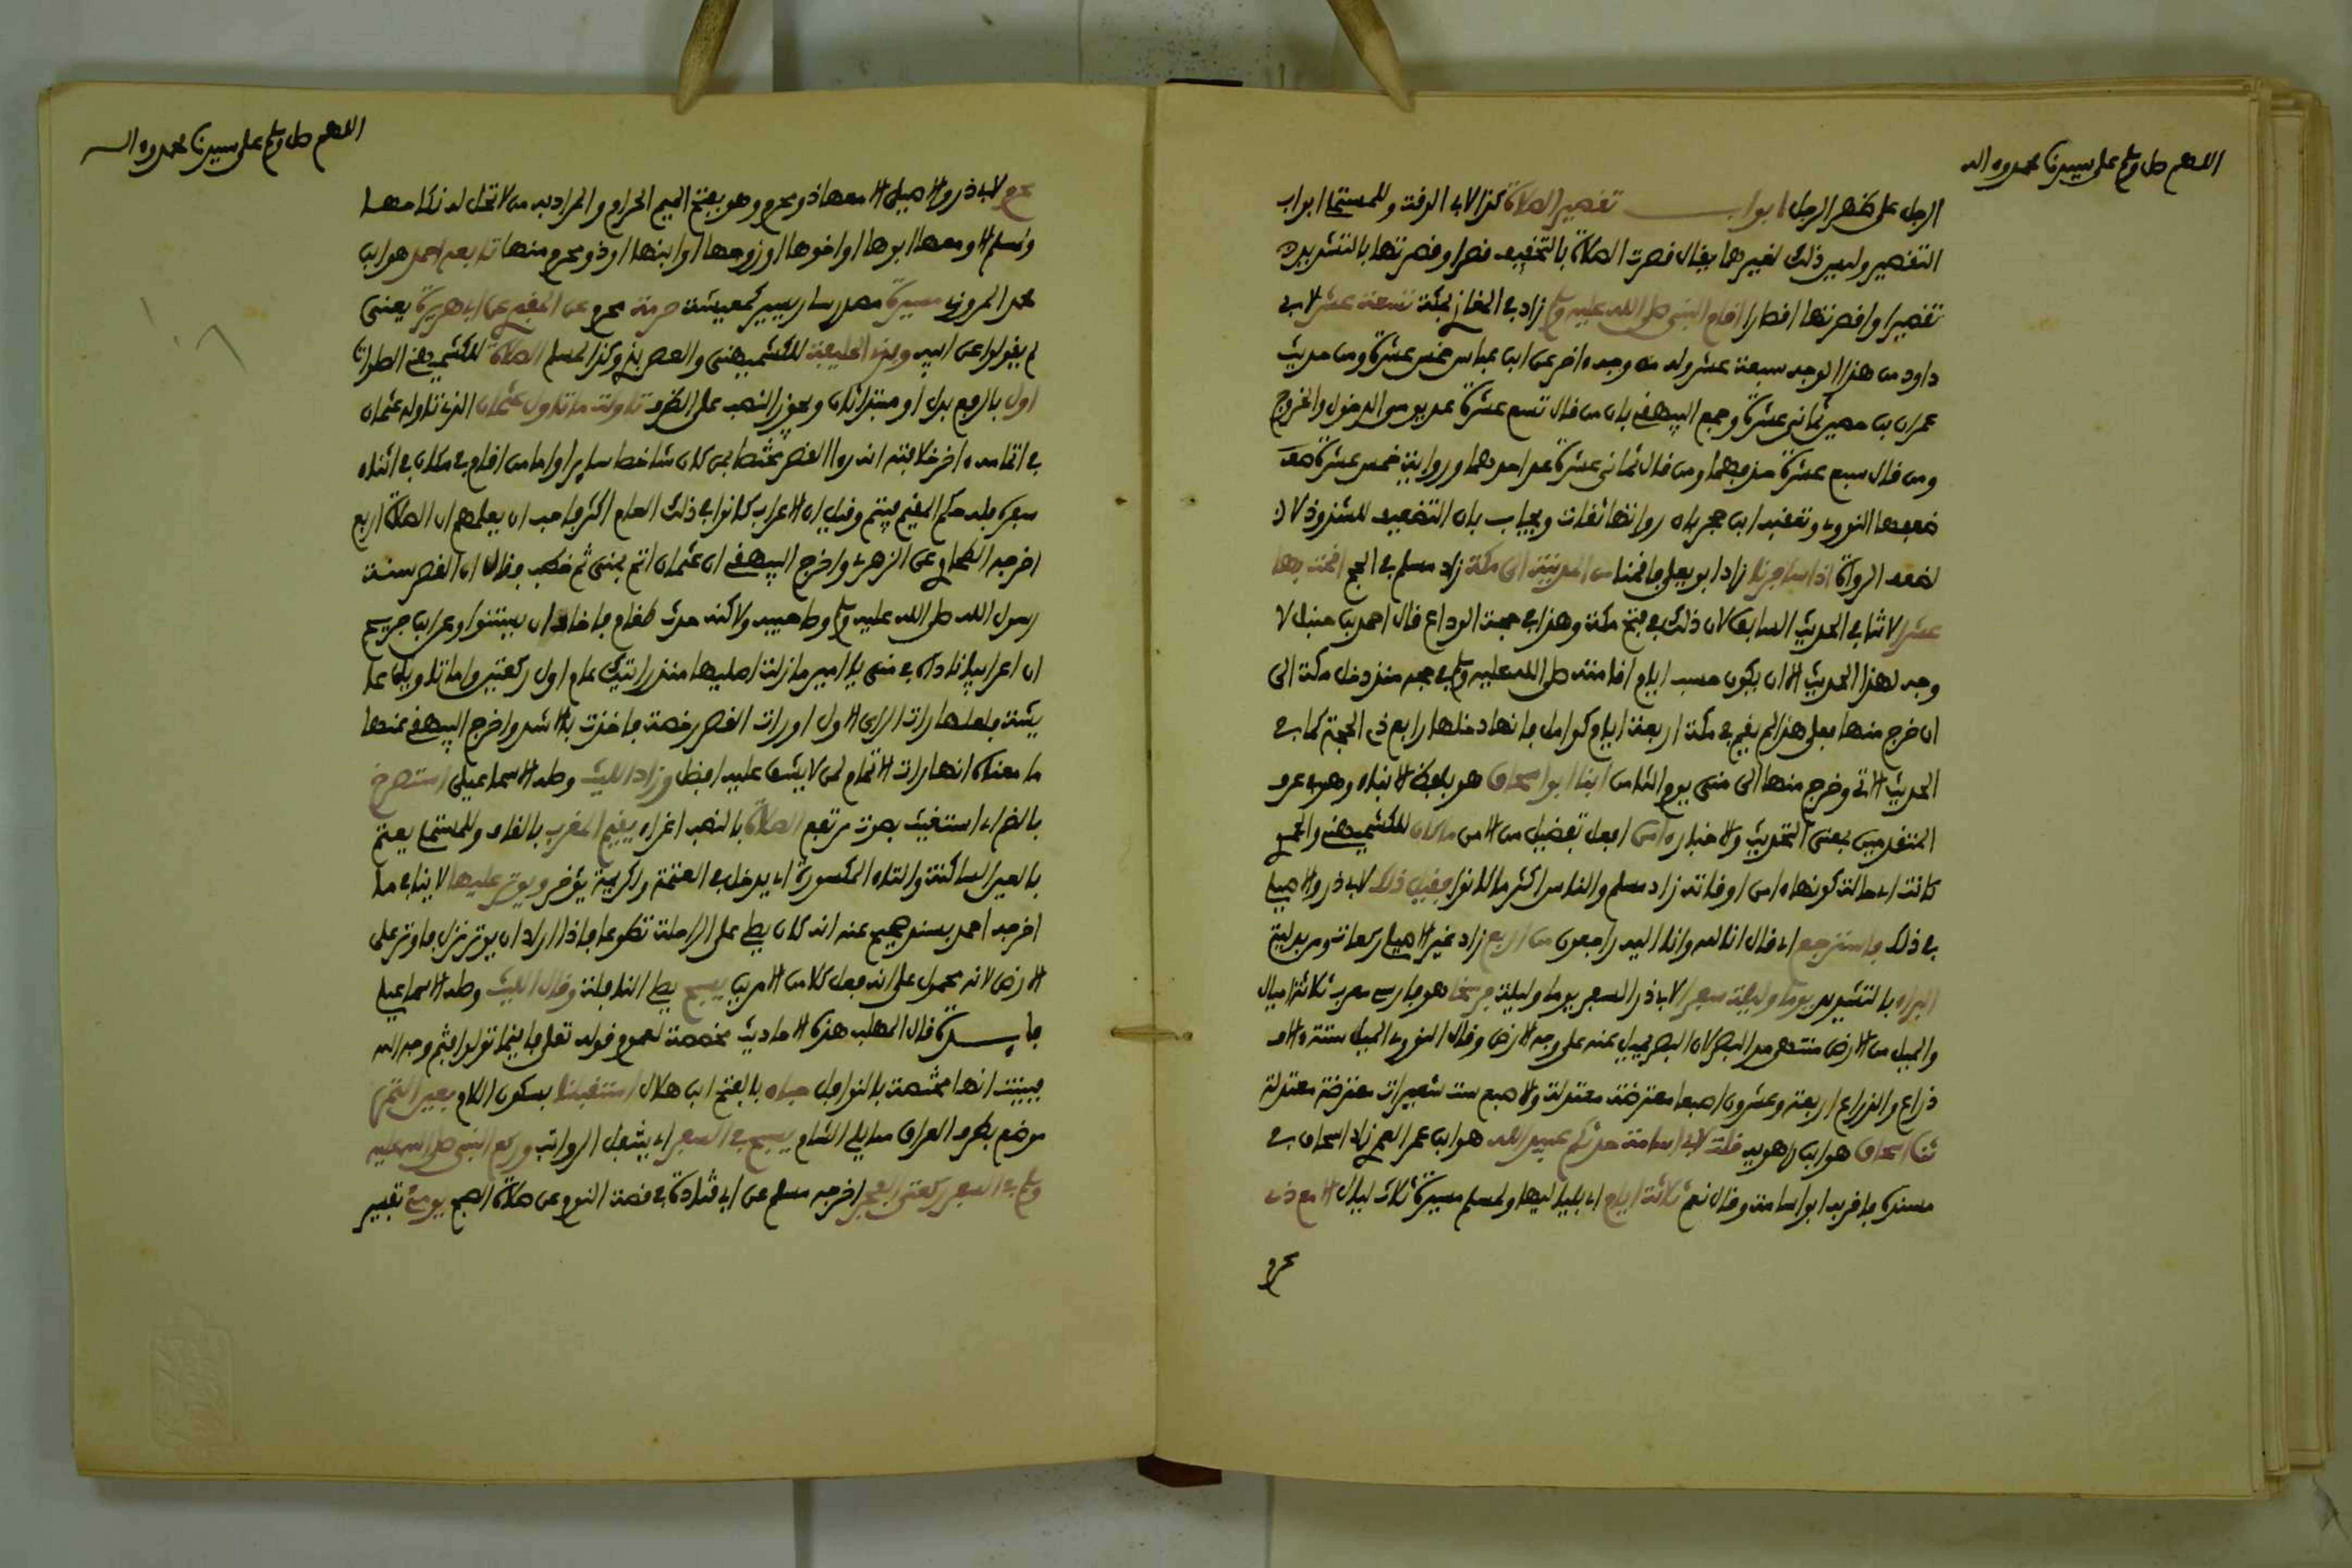 اللهم صل وسلم على سيدنا محمد وءاله
الرجل على ظهر الرجل ابواب تقصير الصلاة كذا لابي الوقت وللمستملي ابواب
التقصير وليس ذلك لغيرهما يقال قصرت الصلاة بالتخفيف قصرا وقصرتها بالتشديد
تقصيرا واقصرتها اقصارا اقام النبي صلى الله عليه وسلم زاد في المغازي بمكة تسعة عشر لابي
داود من هذا الوجه سبعة عشر وله من وجه ءاخر عن ابن عباس خمس عشرة ومن حديث
عمران بن حصين ثماني عشرة وجمع البيهقي بان من قال تسع عشرة عد يومي الدخول والخروج
ومن قال سبع عشرة حذفهما ومن قال ثماني عشرة عد احدهما ورواية خمس عشرة ضعف
ضعفها النووي وتعقبه ابن حجر بان رواتها ثقات ويجاب بان التضعيف للشذوذ لا
لضعف الرواة اذا سافرنا زاد ابو يعلى فاقمنا من المدينة الى مكة زاد مسلم في الحج اقمنا بها
عشرا لا ثنا في الحديث السابق لان ذلك في فتح مكة وهذا في حجة الوداع قال احمد بن حنبل لا
وجه لهذا الحديث الا ان يكون حسب ايام اقامته صلى الله عليه وسلم في حجه منذ دخل مكة الى
ان خرج منها فعلى هذا لم يقم في مكة اربعة ايام كوامل فانها دخلها رابع ذي الحجة كما في
الحديث الاتي وخرج منها الى منى يوم الثامن ابنا ابو اسحاق هو بلفظ الانباء وهو في عرف
المتقدمين بمعنى التحديث والاخبار ءامن افعل تفضيل من الامن ما كان للكشميهني والحموي
كانت اي حالة كونها ءامن اوقاته زاد مسلم والناس اكثر ما كانوا فقيل ذلك لابي ذر والاصيلي
في ذلك فاسترجع اي قال انا لله وانا اليه راجعون من اربع زاد غير الاصيلي ركعات ومن بدلية
البراء بالتشديد يوما وليلة سفرا لابي ذر السفر يوما وليلة فرسخا هو فارسي معرب ثلاثة اميال
والميل من الارض منتهى مد البصر لان البصر يميل عنه على وجه الارض وقال النووي الميل ستة ءالاف
ذراع والذراع اربعة وعشرون اصبعا معترضة معتدلة والاصبع ست شعيرات معترضة معتدلة
ثنا اسحاق هو ابن راهويه قلت لابي اسامة حدثكم عبيد الله هو ابن عمر العمري زاد اسحاق في
مسنده فاقر به ابو اسامة وقال نعم ثلاثة ايام اي بلياليها ولمسلم مسيرة ثلاث ليال الا مع ذي
محرم
اللهم صل وسلم على سيدنا محمد وءاله
محرم لابي ذر والاصيلي الا معها ذو محرم وهو بفتح الميم الحرام والمراد به من لا تحل له نكاحها
ولمسلم الا ومعها ابوها او اخوها او زوجها او ابنها او ذو محرم منها تابعه احمد هو ابن
محمد المروزي مسيرة مصدر سار يسير كمعيشة حرمة محرم عن المقبري عن ابي هريرة يعني
لم يقولوا عن ابيه وبذي الحليفة للكشميهني والعصر بذي وكذا لمسلم الصلاة للكشميهني الصلوات
اول بالرفع بدل او مبتدا ثان ويجوز النصب على الظرف تاولت ما تاول عثمان الذي تاوله عثمان
في اتمامه ءاخر خلافته انه را القصر مختصا بمن كان شاخصا سايرا واما من اقام في مكان في اثناء
سفره فله حكم المقيم فيتم وقيل ان الاعراب كانوا في ذلك العام اكثر فاحب ان يعلمهم ان الصلاة اربع
اخرجه الطحاوي عن الزهري واخرج البيهقي ان عثمان اتم بمنى ثم خطب فقال ان القصر سنة
رسول الله صلى الله عليه وسلم وصاحبيه ولاكنه حدث طغام فخاف ان يستنوا وعن ابن جريج
ان اعرابيا ناداه في منى يا امير ما زلت اصليها منذ رايتك عام اول ركعتين واما تاويل عا
يشة فلعلها رات الراي الاول او رات القصر رخصة فاخذت بالاشد واخرج البيهقي عنها
ما معناه انها رات الاتمام لمن لا يشق عليه افضل وزاد الليث وصله الاسماعيلي استصرخ
بالضم اي استغيث بصوت مرتفع الصلاة بالنصب اغراء يقيم المغرب بالقاف وللمستملي يعتم
بالعين الساكنة والتاء المكسورة اي يدخل في العتمة ولكريمة يؤخر ويوتر عليها لا ينافي ما
اخرجه احمد بسند صحيح عنه انه كان يصلي على الراحلة تطوعا فاذا اراد ان يوتر نزل فاوتر على
الارض لانه محمول على انه فعل كلا من الامرين يسبح يصلي النافلة وقال الليث وصله الاسماعيلي
فايدة قال المهلب هذه الاحاديث مخصصة لعموم قوله تعلى فاينما تولوا فثم وجه الله
فبينت انها مختصة بالنوافل حبان بالفتح ابن هلال استقبلنا بسكون اللام بعين التمر
موضع بطرف العراق مما يلي الشام يسبح في السفر اي يتنفل الرواتب وركع النبي صلى الله عليه
وسلم في السفر ركعتي الفجر اخرجه مسلم عن ابي قتادة في قصة النوم عن صلاة الصبح يومئ تفسير